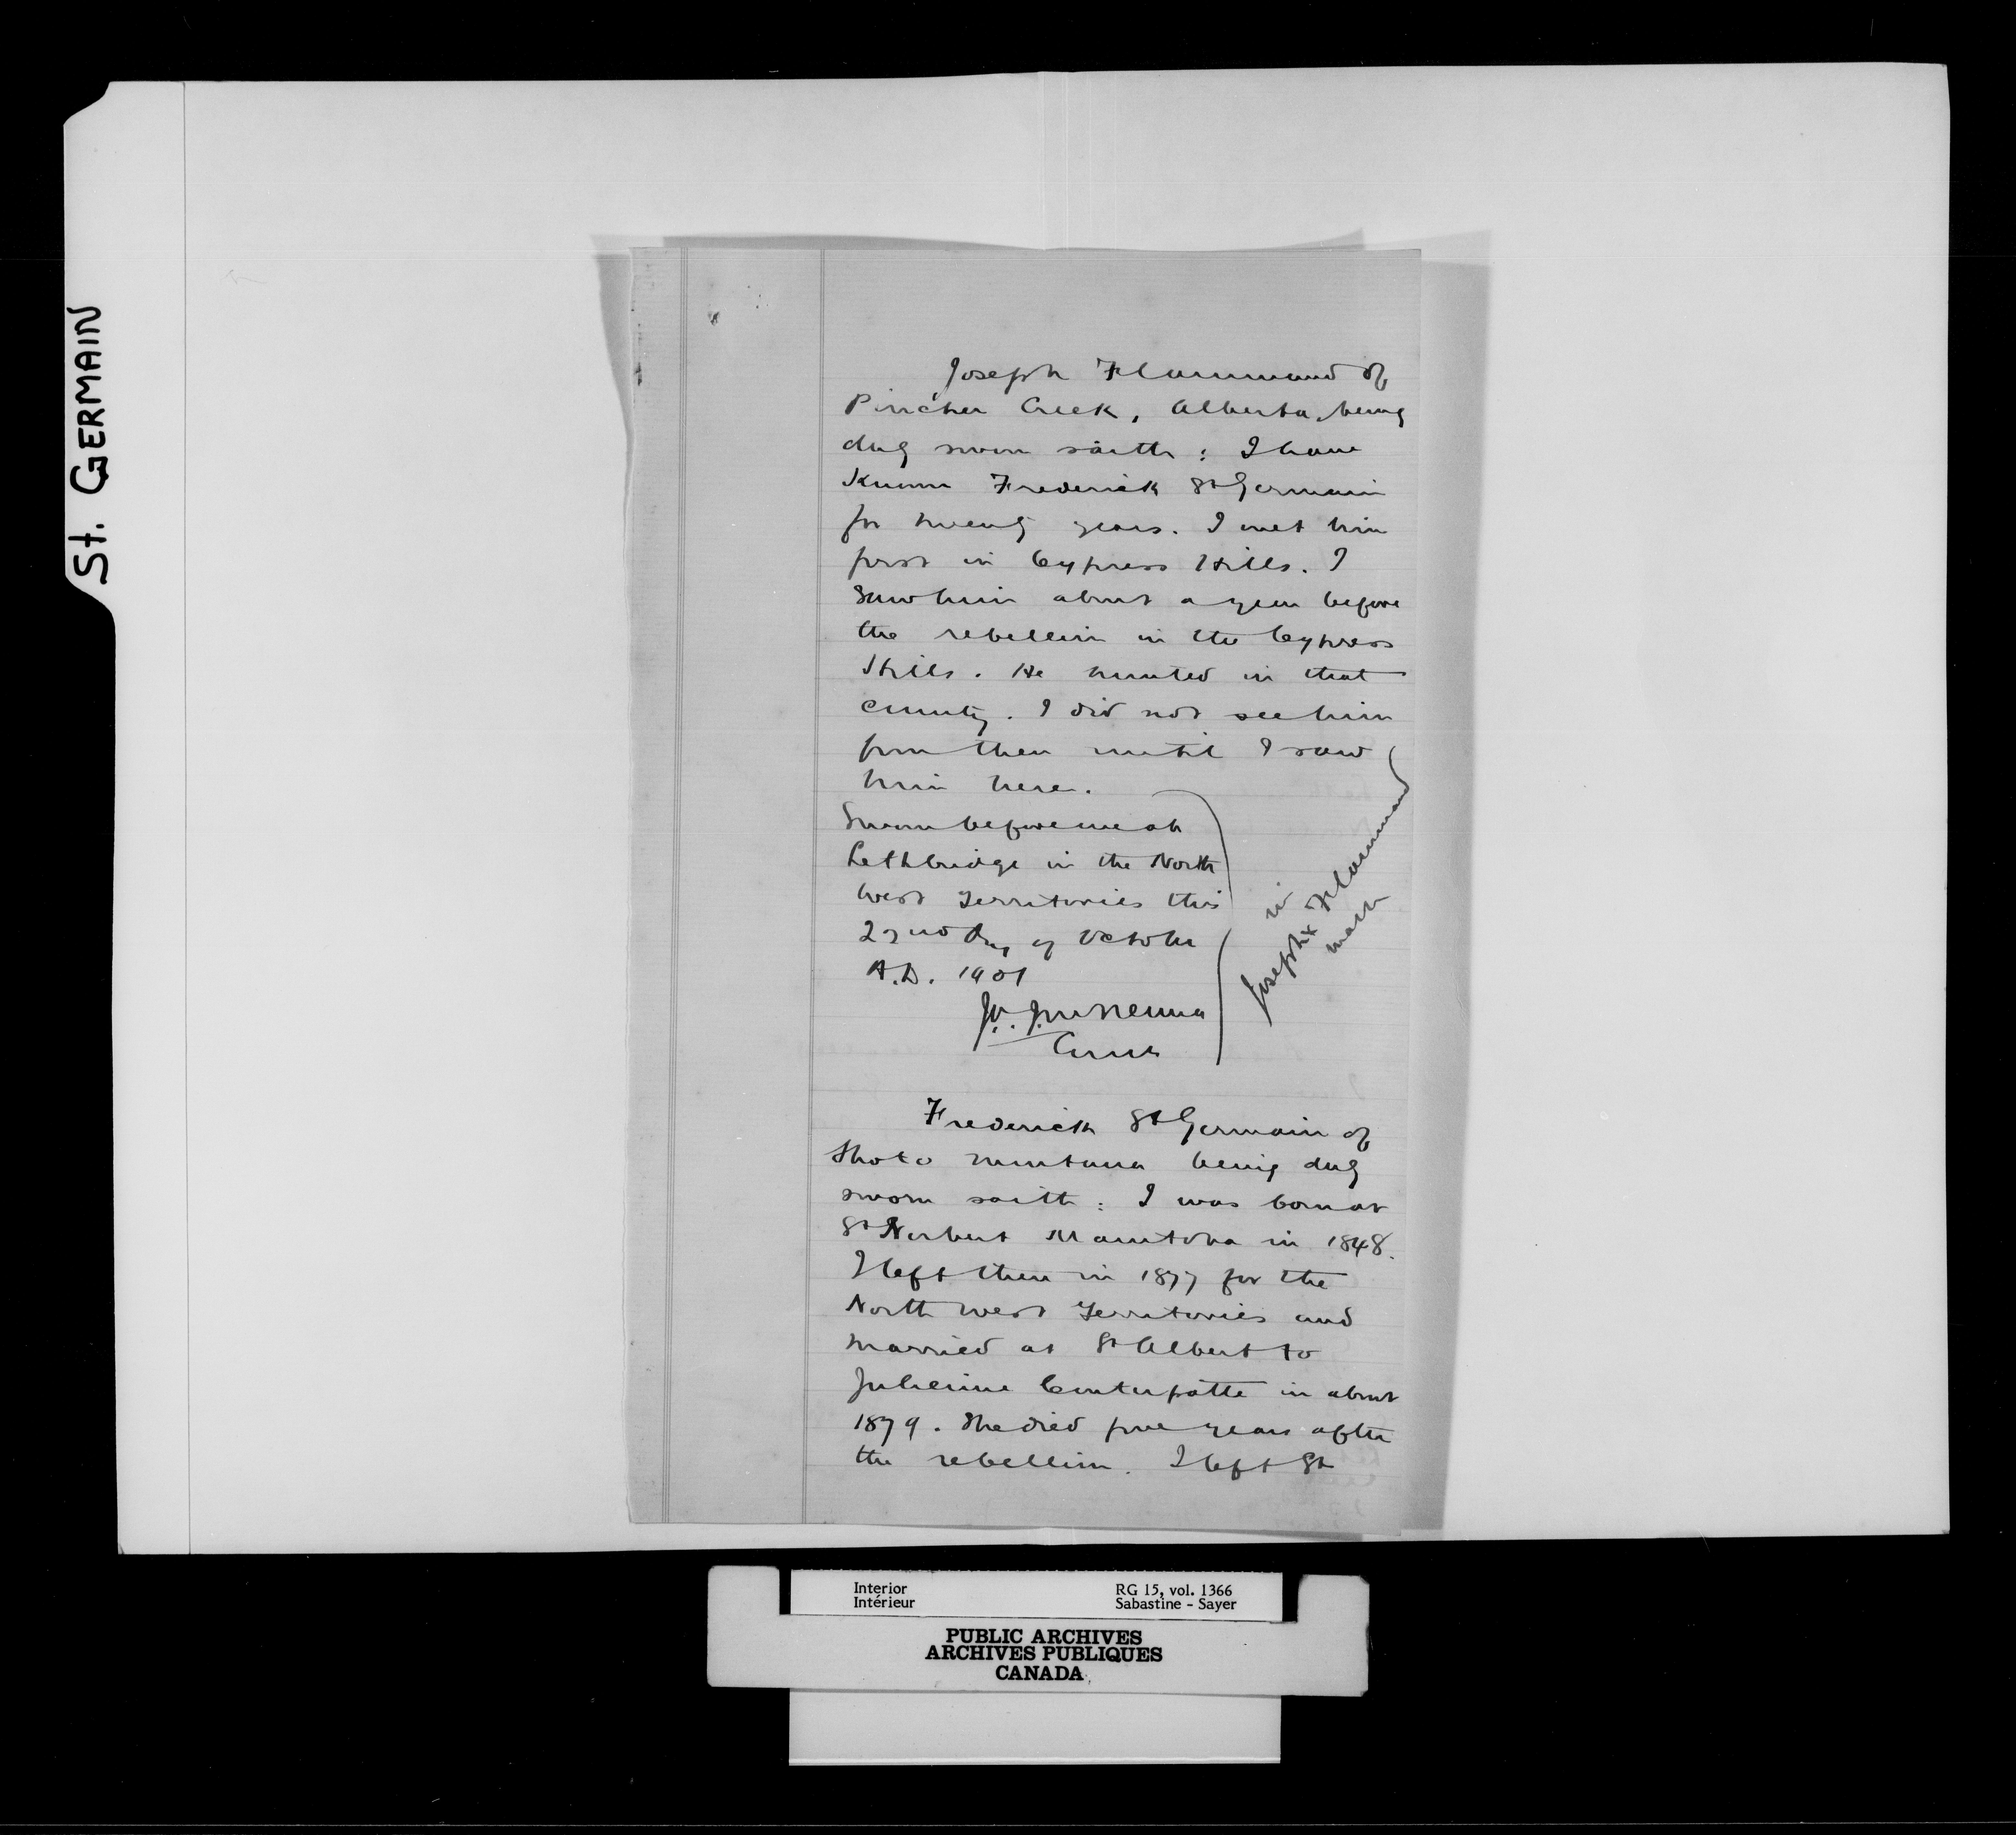 St. GERMAIN
Joseph Flammand of
Pincher Creek, Alberta, being
duly sworn saith: I have
Known Frederick St Germain
for twenty years. I met him
first in Cypress Hills. I
Saw him about a year before
the rebellion in the Cypress
Hills. He hunted in that
country. I did not see him
from then until I saw
him here.
Sworn before me at
Lethbridge in the North
West Territories this
22nd day of October
A.D. 1901
Joseph x Flammand
mark
Frederick St Germain of
Montana being duly
sworn saith: I was born at
St Norbert Manitoba in 1848.
I left there in 1877 for the
North West Territories and
married at St Albert to
Julienne in about
1879. She died five years after
the rebellion. I left St
Interior RG 15, vol. 1366
Intérieur Sabastine - Sayer
PUBLIC ARCHIVES
ARCHIVES PUBLIQUES
CANADA